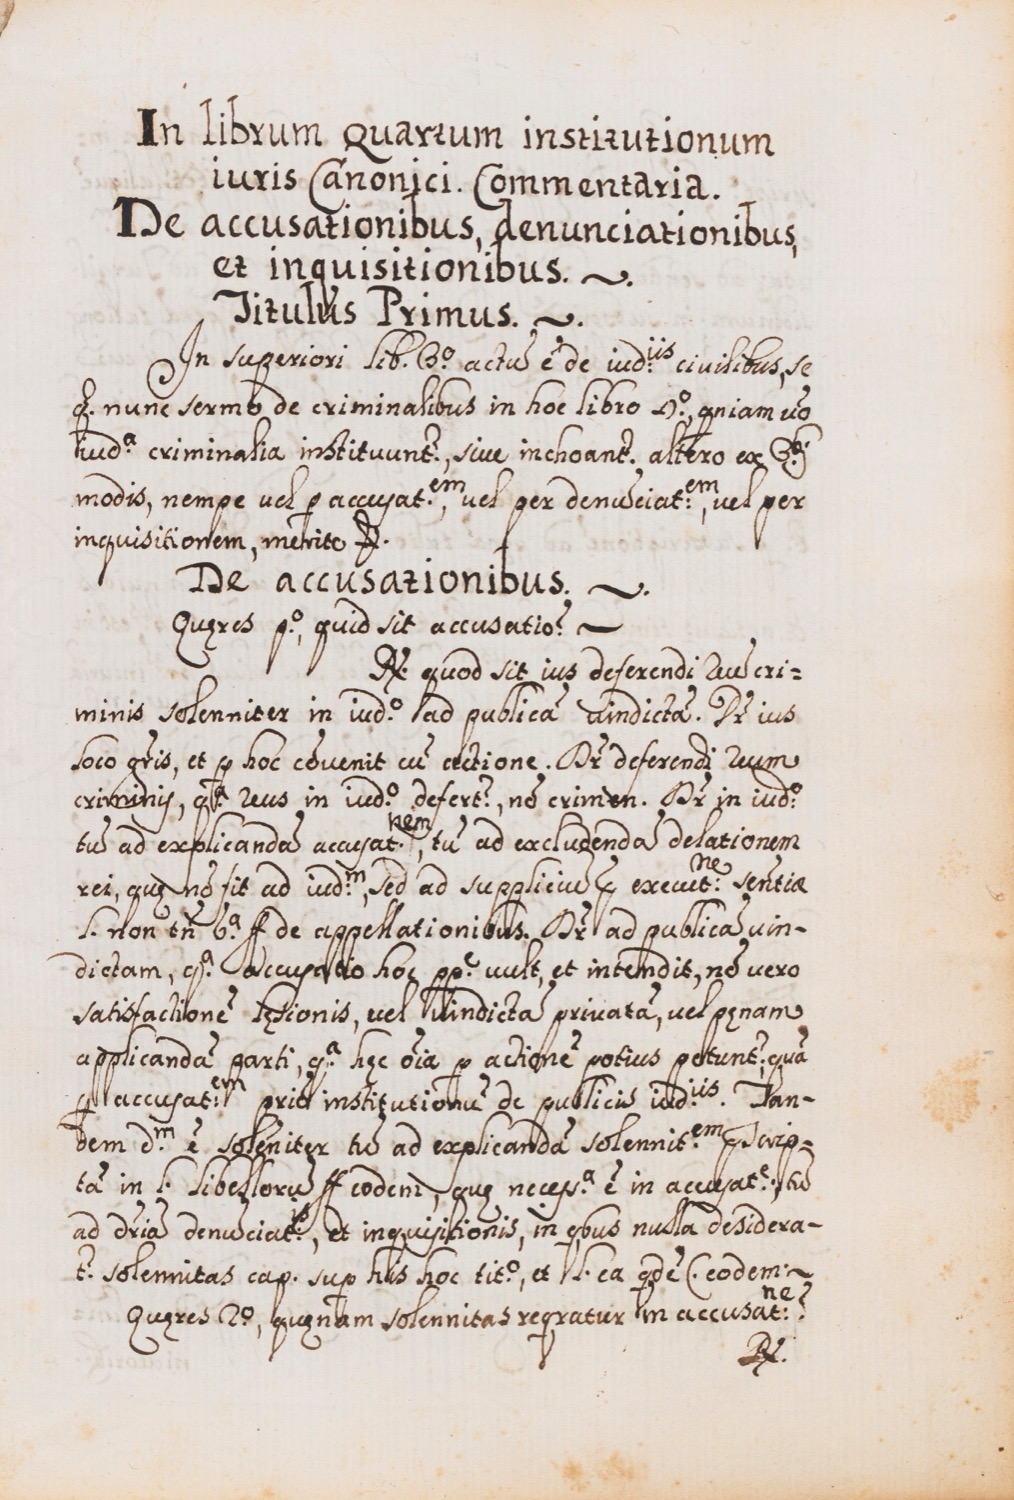 In librum Quartum institutionum
iuris Canonici. Commentaria.
De accusationibus, denunciationibus,
et inquisitionibus. ~.
Titulus Primus. ~.
In superiori lib. 3º actũ ẽ de iud.iis civilibus, se
q̃. nunc sermo de criminalibus in hoc libro 4º, qniam uõ
iud.ª criminalia instituunt.r, siue inchoant.r altero ex 3.bus
modis, nempe uel p accusat.em, uel per denũciat.em, uel per
inquisitionem, merito
De accusationibus. ~.
Quęres pº, quid sit accusatio? ~
R. quod sit ius deferendi reũ cri-
minis solenniter in iud.º ad publicã uindictã. Dr̃ ius
loco gr̃is, et p hoc cõvenit cũ actione. Dr̃ deferendi reum
criminis, qª reus in iud.º defert.r, nõ crimen. Dr̃ in iud.º
tũ ad explicandã accusat.nem, tũ ad excludendã delationem
rei, quę nõ fit ad iud.m, sed ad suppliciũ p execut.ne sentiæ
l. non tñ 6.ª ff de appellationibus. Dr̃ ad publicã uin-
dictam, qª accusatio hoc pp.e uult, et intendit, nõ vero
satisfactionẽ lęsionis, uel uindictã priuatã, uel pęnam
applicandã parti, qª hęc oĩa p actionẽ potius petunt.r quã
p accusat.em prĩo institutionũ de publicis iud.iis. Tan-
dem d.m ẽ solẽniter tũ ad explicandã solennit.em scrip-
tã in l. libellorũ ff eodem, quę necess.ª ẽ in accusat.e, tũ
ad dr̃iã denũciat.is, et inquisitionis, in qbus nulla desidera-
t.r solennitas cap. sup his hoc tit.º, et l. ea qdẽ C. eodem. ~
Quęres 2º, quęnam solennitas reqratur in accusat.ne?
R.